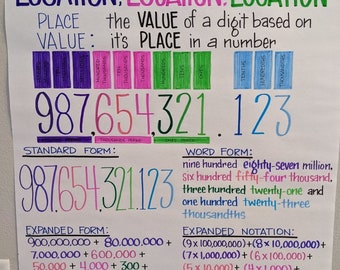 LOCATION, LOCATION, LOCATION
PLACE VALUE: the VALUE of a digit based on it's PLACE in a number
987,654,321.123
STANDARD FORM:
987,654,321.123
WORD FORM:
nine hundred eighty-seven million,
six hundred fifty-four thousand,
three hundred twenty-one and
one hundred twenty-three
thousandths
EXPANDED FORM:
900,000,000 + 80,000,000 +
7,000,000 + 600,000 +
50,000 + 4,000 + 300 +
EXPANDED NOTATION:
(9 x 100,000,000) + (8 x 10,000,000) +
(7 x 1,000,000) + (6 x 100,000) +
(5 x 10,000) + (4 x 1,000) +